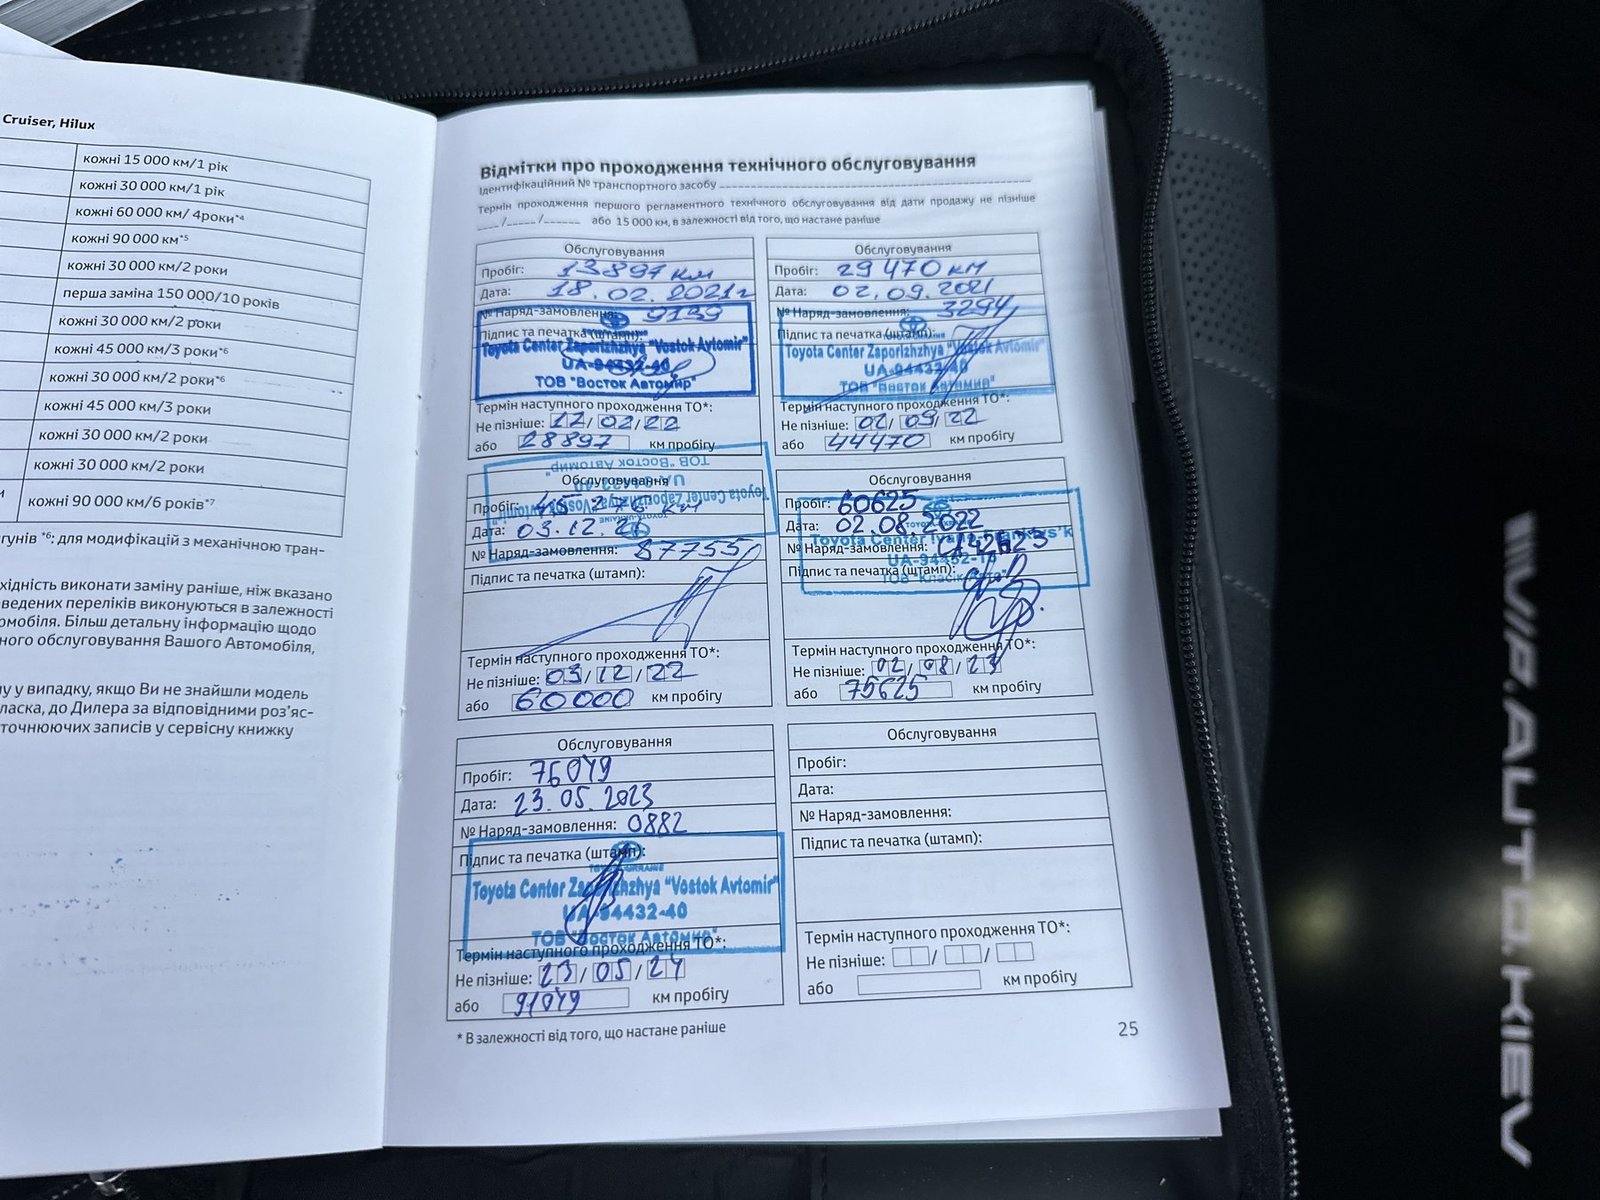 Cruiser, Hilux
кожні 15 000 км/1 рік
кожні 30 000 км/1 рік
кожні 60 000 км/ 4роки*4
кожні 90 000 км*5
кожні 30 000 км/2 роки
перша заміна 150 000/10 років
кожні 30 000 км/2 роки
кожні 45 000 км/3 роки*6
кожні 30 000 км/2 роки*6
кожні 45 000 км/3 роки
кожні 30 000 км/2 роки
кожні 30 000 км/2 роки
кожні 90 000 км/6 років*7
гунів *6: для модифікацій з механічною тран-
хідність виконати заміну раніше, ніж вказано
ведених переліків виконуються в залежності
омобіля. Більш детальну інформацію щодо
ного обслуговування Вашого Автомобіля,
у у випадку, якщо Ви не знайшли модель
ласка, до Дилера за відповідними роз'яс-
точнюючих записів у сервісну книжку
Відмітки про проходження технічного обслуговування
Ідентифікаційний № транспортного засобу
Термін проходження першого регламентного технічного обслуговування від дати продажу не пізніше
___ /_____ /______ або 15 000 км, в залежності від того, що настане раніше
Обслуговування
Пробіг: 13897 км
Дата: 18.02.2021г
№ Наряд-замовлення: 9139
Підпис та печатка (штамп):
Toyota Center Zaporizhzhya "Vostok Avtomir"
UA-94432-40
ТОВ "Восток Автомир"
Термін наступного проходження ТО*:
Не пізніше: 17/02/22
або 28897 км пробігу
Обслуговування
Пробіг: 29470 км
Дата: 02.09.2021
№ Наряд-замовлення: 3294
Підпис та печатка (штамп):
Toyota Center Zaporizhzhya "Vostok Avtomir"
UA-94432-40
ТОВ "Восток Автомир"
Термін наступного проходження ТО*:
Не пізніше: 02/09/22
або 44470 км пробігу
ТОВ "Восток Автомир"
Toyota Center Zaporizhzhya "Vostok Avtomir"
Обслуговування
Пробіг: км
Дата: 03.12.21
№ Наряд-замовлення: 87755
Підпис та печатка (штамп):
Термін наступного проходження ТО*:
Не пізніше: 03/12/22
або 60000 км пробігу
Обслуговування
Пробіг: 60625
Дата: 02.08.2022
№ Наряд-замовлення:
Toyota Center
Підпис та печатка (штамп):
Термін наступного проходження ТО*:
Не пізніше: 02/08/23
або 75625 км пробігу
Обслуговування
Пробіг: 76049
Дата: 23.05.2023
№ Наряд-замовлення: 0882
Підпис та печатка (штамп):
Toyota Center Zaporizhzhya "Vostok Avtomir"
UA-94432-40
ТОВ "Восток Автомир"
Термін наступного проходження ТО*:
Не пізніше: 23/05/24
або 91049 км пробігу
Обслуговування
Пробіг:
Дата:
№ Наряд-замовлення:
Підпис та печатка (штамп):
Термін наступного проходження ТО*:
Не пізніше: / /
або км пробігу
* В залежності від того, що настане раніше
25
VIP.AUTO.KIEV